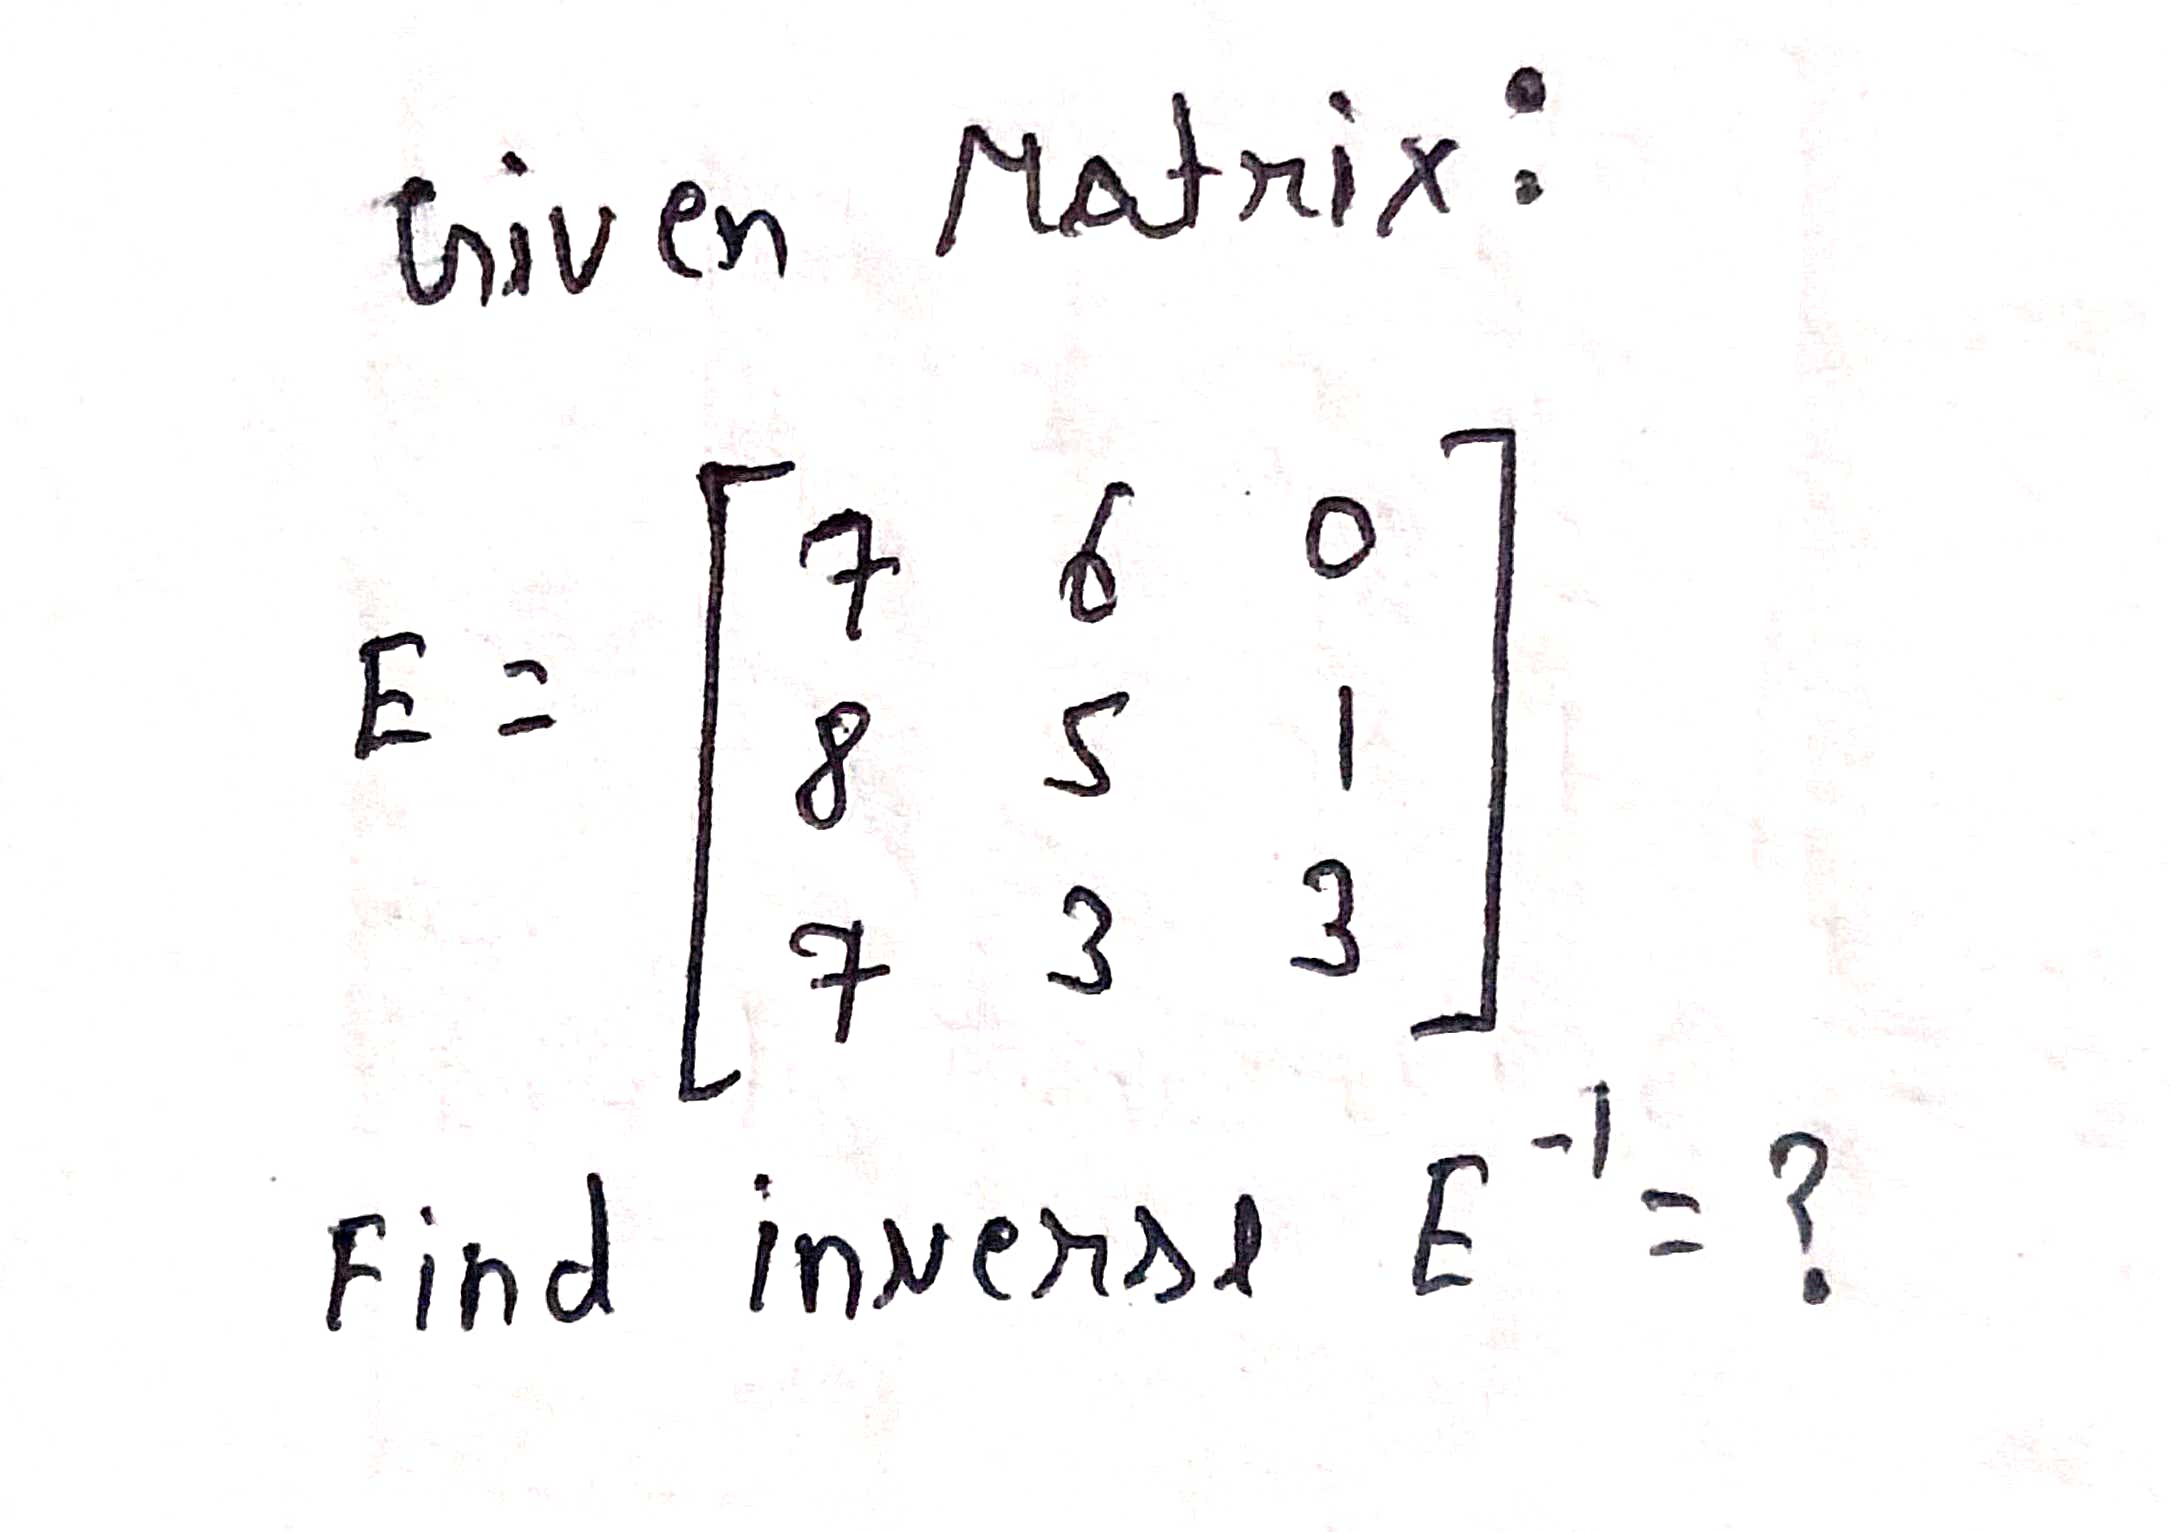 Given Matrix:
E = [7 6 0
8 5 1
7 3 3]
Find inverse E⁻¹ = ?